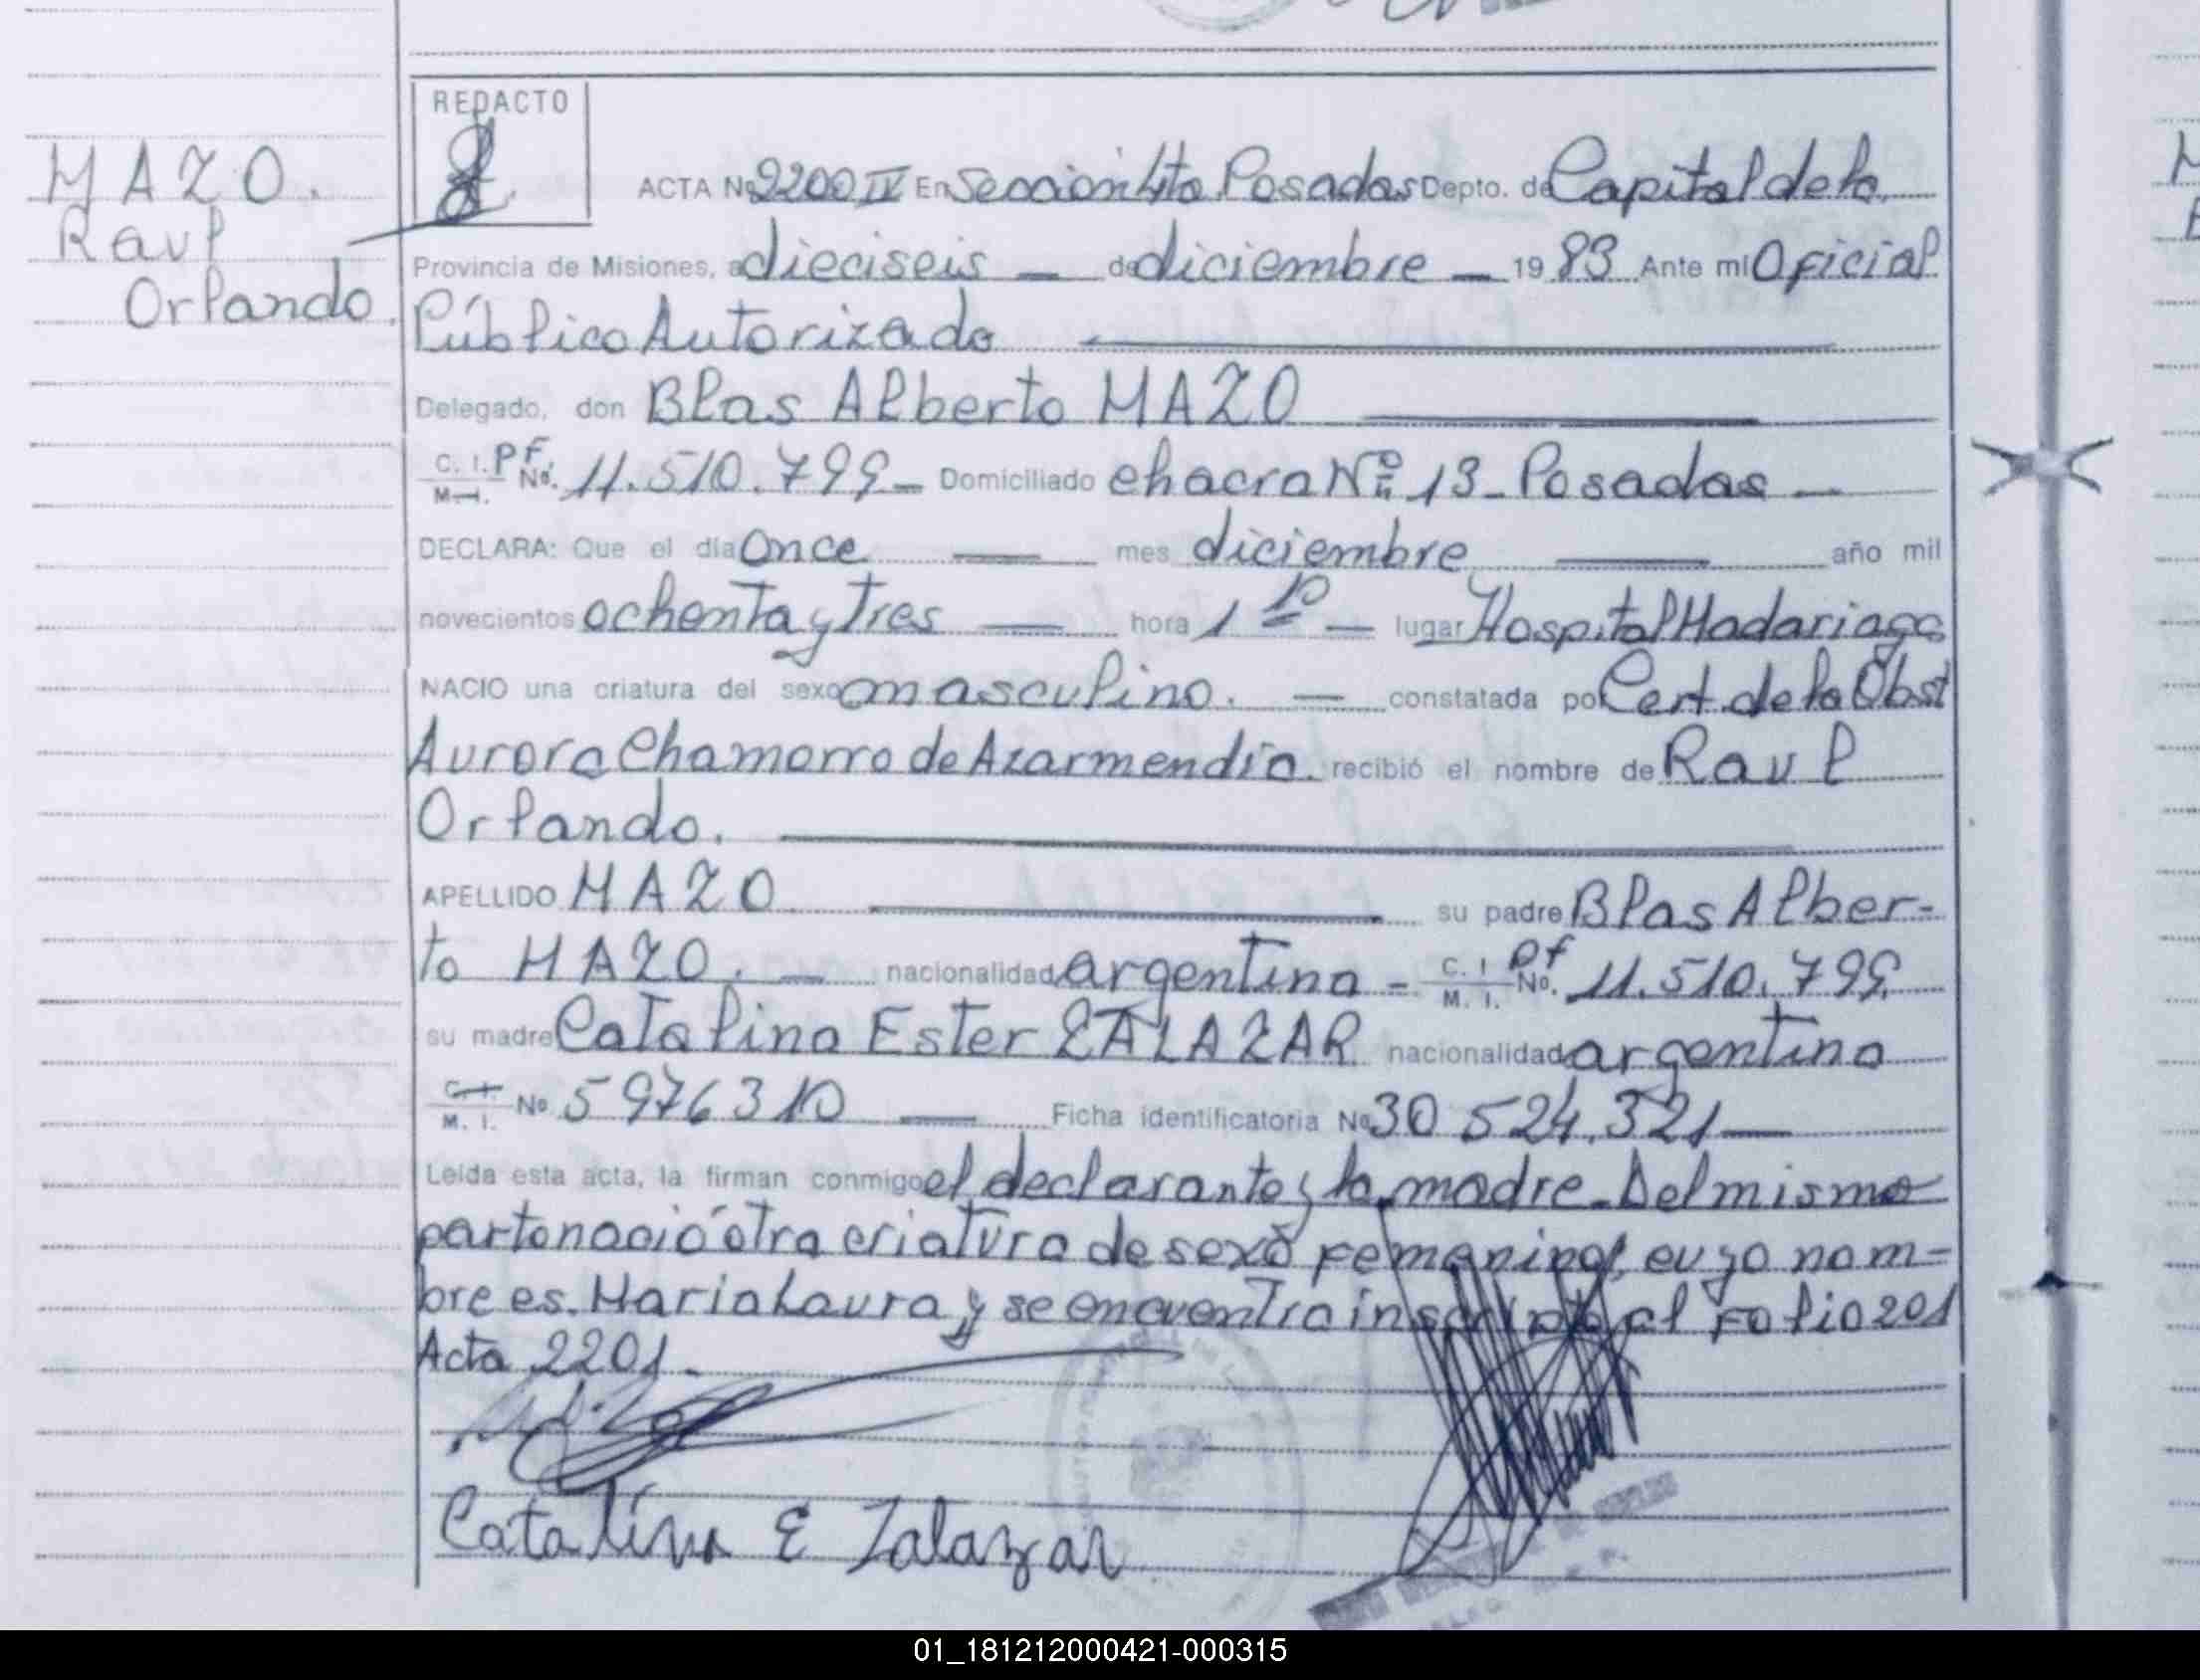 REDACTO
MAZO.
Raul
Orlando.
ACTA No 2200 IV En Sección 4ta. Posadas Depto. de Capital de la
Provincia de Misiones, a dieciseis — de diciembre — 1983 Ante mí Oficial
Público Autorizado
Delegado, don Blas Alberto MAZO
C. I. Pf. No. 11.510.799 — Domiciliado chacra Nº 13 - Posadas —
M. I.
DECLARA: Que el día Once — mes diciembre — año mil
novecientos ochenta y tres — hora 1 10 — lugar Hospital Madariaga
NACIO una criatura del sexo masculino. — constatada por Cert. de la Obst
Aurora Chamorro de Azarmendia. recibió el nombre de Raul
Orlando.
APELLIDO MAZO — su padre Blas Alber-
to MAZO. — nacionalidad argentina - C. I. Pf No. 11.510.799
M. I.
su madre Catalina Ester ZALAZAR nacionalidad argentina
C. I.
M. I. No 5976310 — Ficha identificatoria No 30 524.321 —
Leída esta acta, la firman conmigo el declarante y la madre - Del mismo
parto nació otra criatura de sexo femenino, cuyo nom-
bre es. Maria Laura y se encuentra inscripta al Folio 201
Acta 2201.-
Catalina E Zalazar
01_181212000421-000315